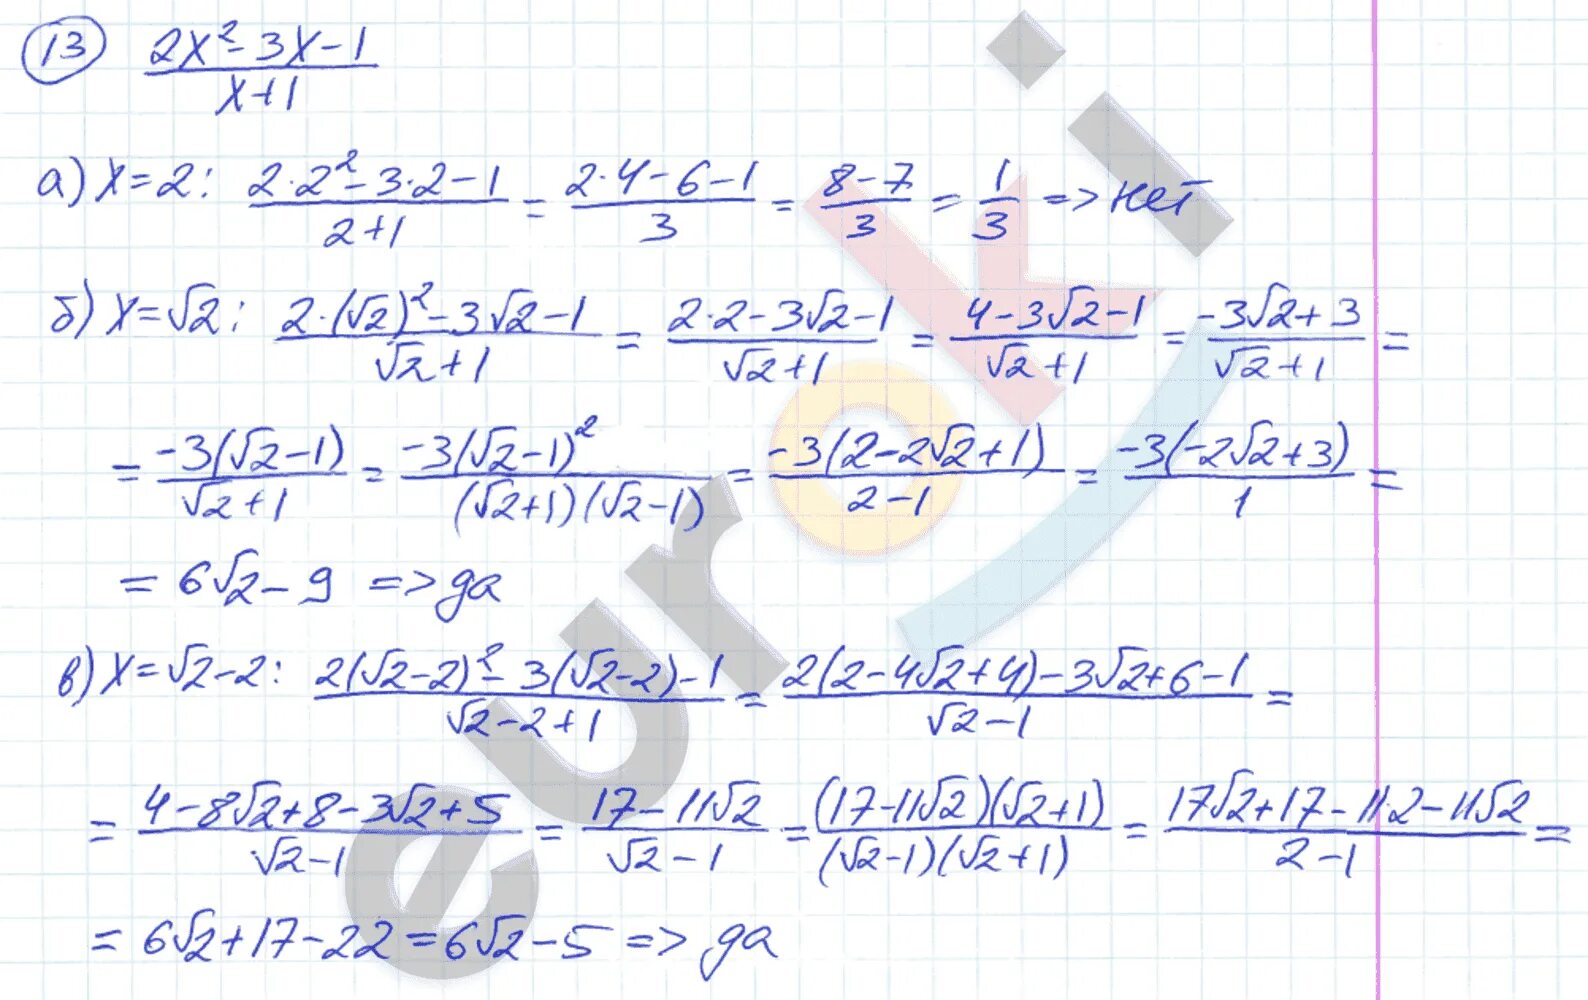 13 (2x² - 3x - 1)/(x + 1)
а) x = 2: (2·2² - 3·2 - 1)/(2 + 1) = (2·4 - 6 - 1)/3 = (8 - 7)/3 = 1/3 => нет
б) x = √2: (2·(√2)² - 3√2 - 1)/(√2 + 1) = (2·2 - 3√2 - 1)/(√2 + 1) = (4 - 3√2 - 1)/(√2 + 1) = (-3√2 + 3)/(√2 + 1) =
= (-3(√2 - 1))/(√2 + 1) = (-3(√2 - 1)²)/((√2 + 1)(√2 - 1)) = (-3(2 - 2√2 + 1))/(2 - 1) = (-3(-2√2 + 3))/1 =
= 6√2 - 9 => да
в) x = √2 - 2: (2(√2 - 2)² - 3(√2 - 2) - 1)/(√2 - 2 + 1) = (2(2 - 4√2 + 4) - 3√2 + 6 - 1)/(√2 - 1) =
= (4 - 8√2 + 8 - 3√2 + 5)/(√2 - 1) = (17 - 11√2)/(√2 - 1) = ((17 - 11√2)(√2 + 1))/((√2 - 1)(√2 + 1)) = (17√2 + 17 - 11·2 - 11√2)/(2 - 1) =
= 6√2 + 17 - 22 = 6√2 - 5 => да
euroki